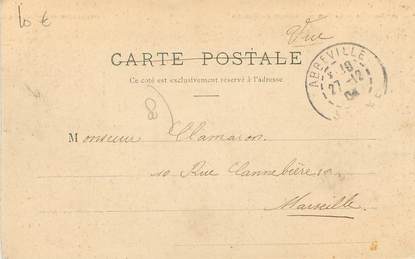 10 €
Vue
CARTE POSTALE
Ce côté est exclusivement réservé à l'adresse
ABBEVILLE
27-12
Monsieur Clamaron
10 Rue Cannebière
Marseille.